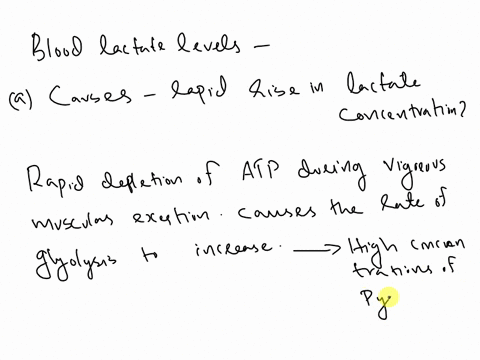 Blood lactate levels —
(a) Causes - rapid rise in lactate
concentration?
Rapid depletion of ATP during vigreous
muscular exertion. causes the rate of
glyolysis to increase. → High concen
trations of
Py